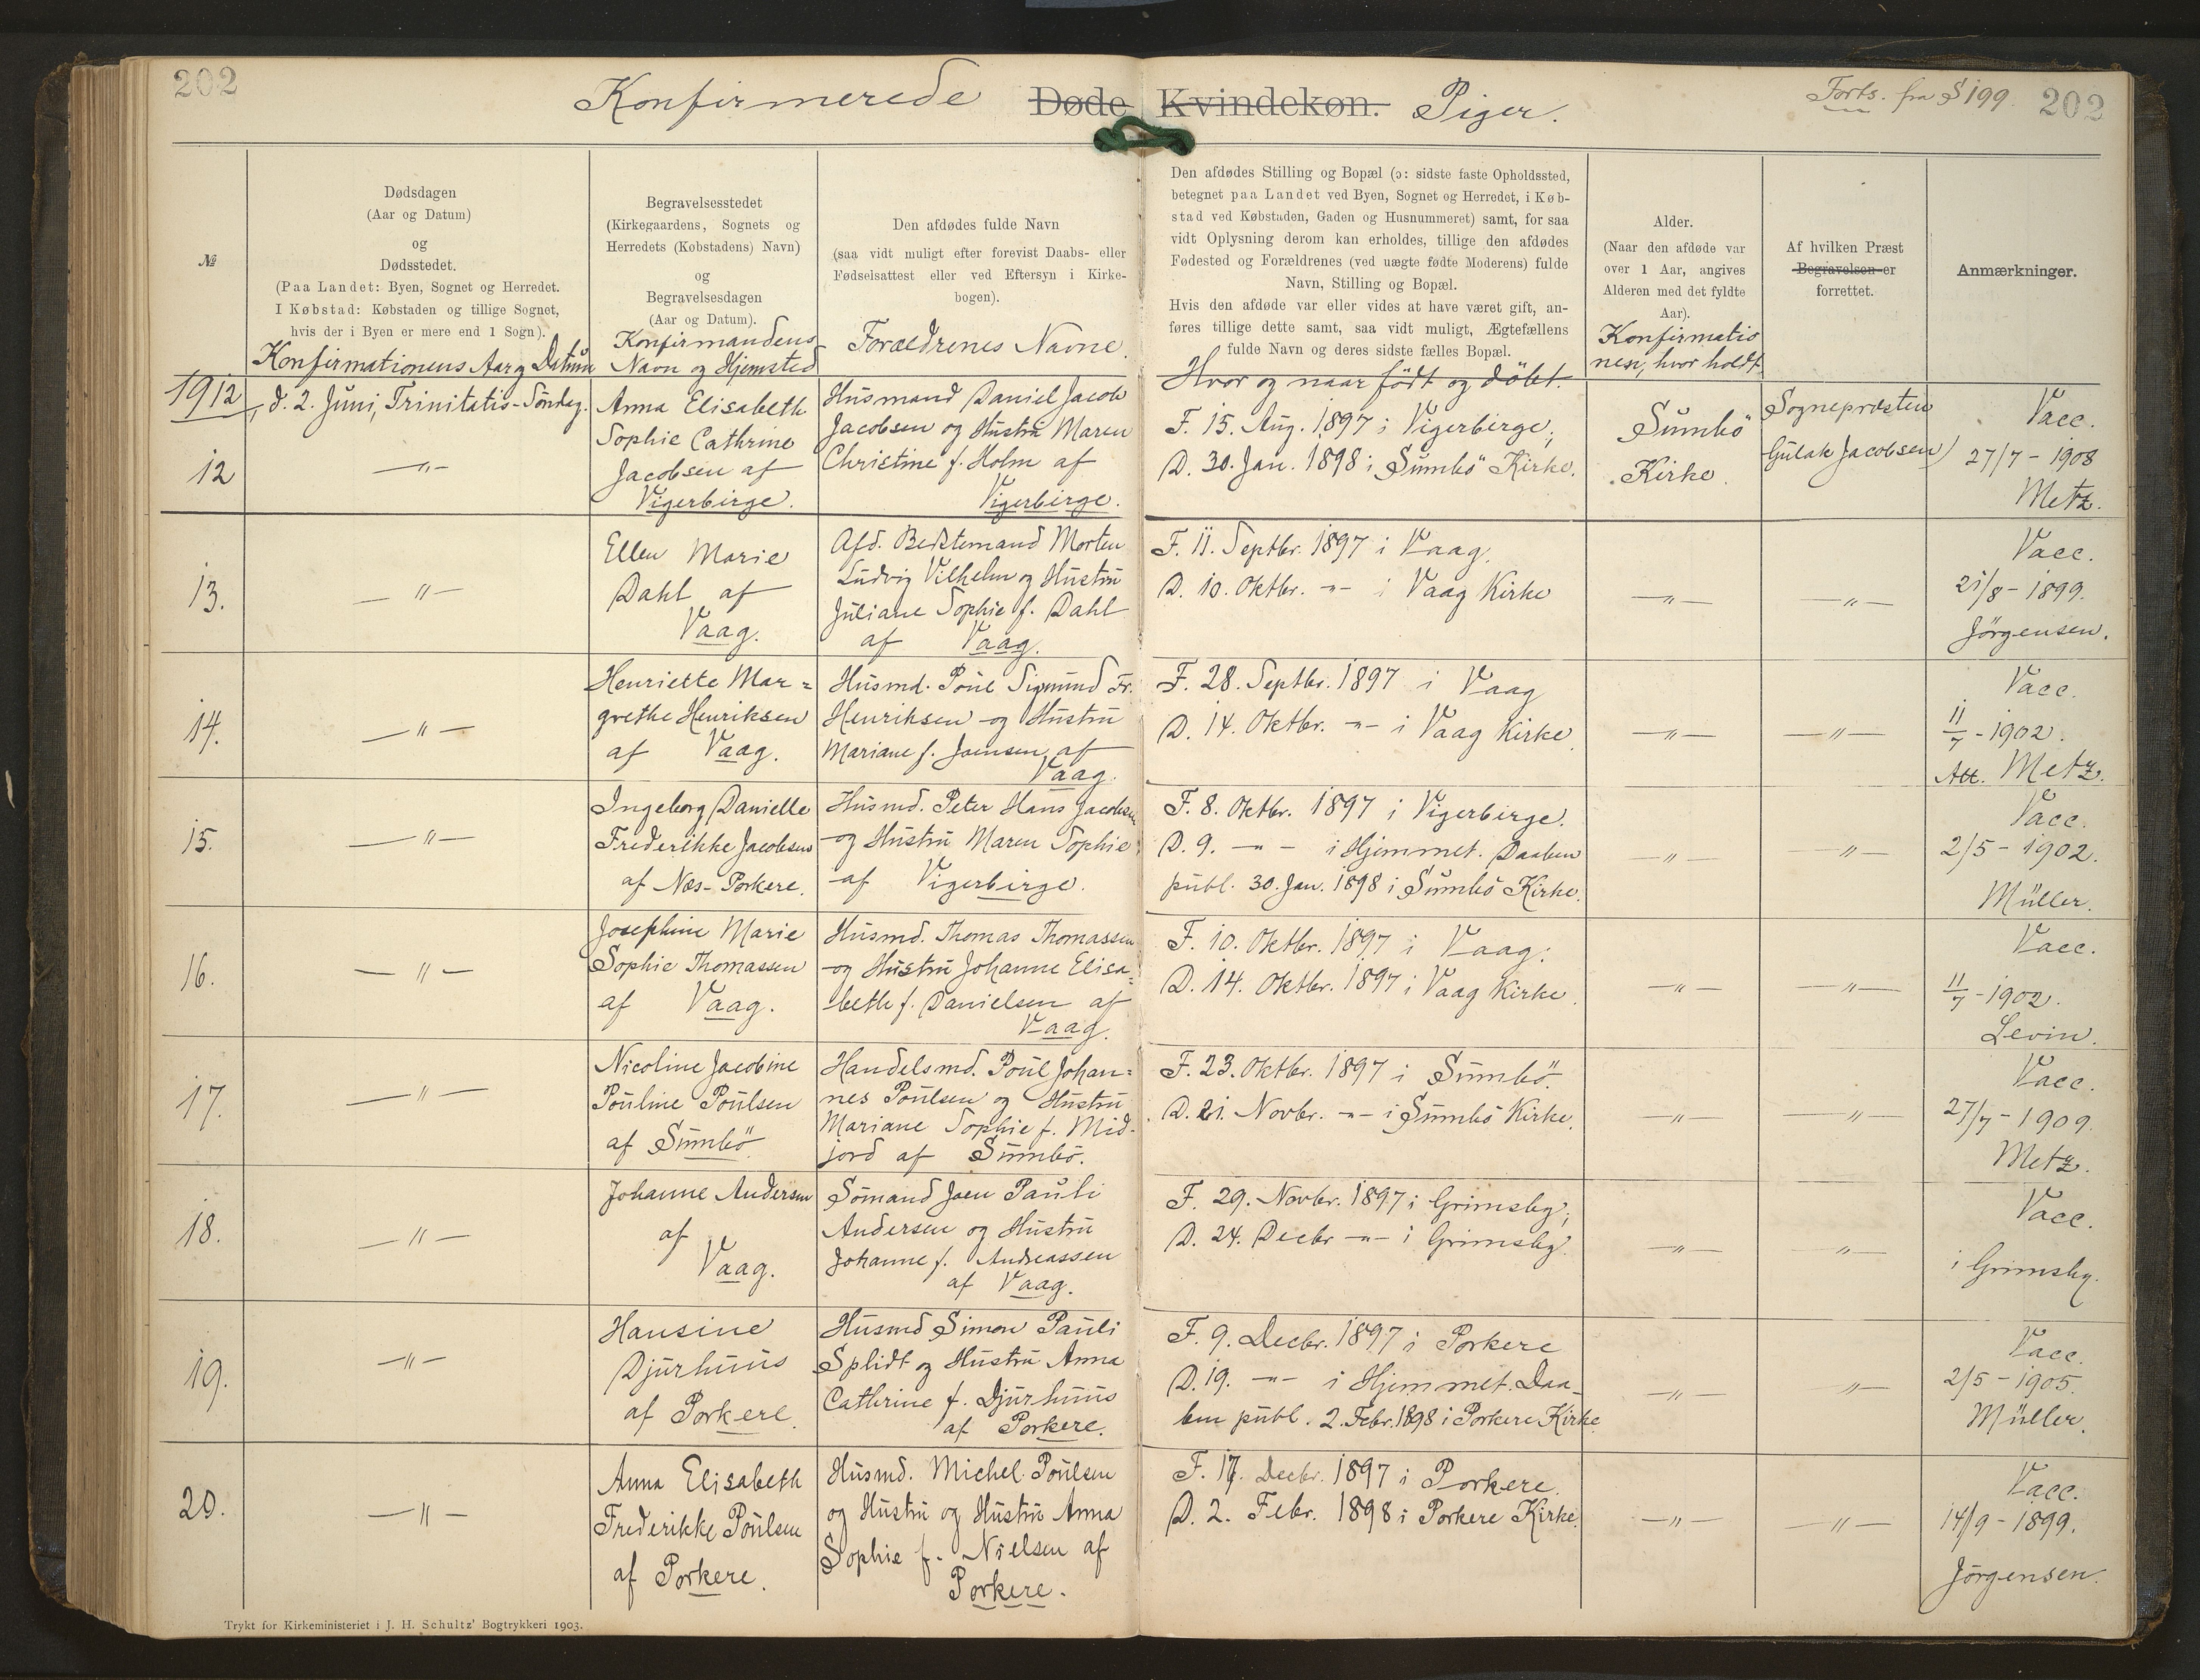 202
Konfirmerede Døde Kvindekøn. Piger.
Forts. fra S 199
202
№
Dødsdagen
(Aar og Datum)
og
Dødsstedet.
(Paa Landet: Byen, Sognet og Herredet.
I Købstad: Købstaden og tillige Sognet,
hvis der i Byen er mere end 1 Sogn).
Konfirmationens Aar og Datum
Begravelsesstedet
(Kirkegaardens, Sognets og
Herredets (Købstadens) Navn)
og
Begravelsesdagen
(Aar og Datum).
Konfirmandens
Navn og Hjemsted
Den afdødes fulde Navn
(saa vidt muligt efter forevist Daabs- eller
Fødselsattest eller ved Eftersyn i Kirke-
bogen).
Forældrenes Navne.
Den afdødes Stilling og Bopæl (ɔ: sidste faste Opholdssted,
betegnet paa Landet ved Byen, Sognet og Herredet, i Køb-
stad ved Købstaden, Gaden og Husnummeret) samt, for saa
vidt Oplysning derom kan erholdes, tillige den afdødes
Fødested og Forældrenes (ved uægte fødte Moderens) fulde
Navn, Stilling og Bopæl.
Hvis den afdøde var eller vides at have været gift, an-
føres tillige dette samt, saa vidt muligt, Ægtefællens
fulde Navn og deres sidste fælles Bopæl.
Hvor og naar födt og döbt.
Alder.
(Naar den afdøde var
over 1 Aar, angives
Alderen med det fyldte
Aar).
Konfirmatio
nen, hvor holdt
Af hvilken Præst
Begravelsen er
forrettet.
Anmærkninger.
1912, d. 2. Juni, Trinitatis-Söndag.
12
—"—
Anna Elisabeth
Sophie Cathrine
Jacobsen af
Vigerbirge.
Husmand Daniel Jacob
Jacobsen og Hustru Maren
Christine f. Holm af
Vigerbirge.
F. 15. Aug. 1897 i Vigerbirge;
D. 30. Jan. 1898 i Sumbö Kirke.
Sumbö
Kirke.
Sognepræsten
Gulak Jacobsen
Vacc.
27/7 - 1908
Metz.
13.
—"—
Ellen Marie
Dahl af
Vaag.
Afd. Bedstemand Morten
Ludvig Vilhelm og Hustru
Juliane Sophie f. Dahl
af Vaag.
F. 11. Septbr. 1897 i Vaag.
D. 10. Oktbr. -"- i Vaag Kirke
—"—
—"—
Vacc.
21/8 - 1899.
Jörgensen.
14.
—"—
Henriette Mar=
grethe Henriksen
af Vaag.
Husmd. Poul Sigmund Fr.
Henriksen og Hustru
Mariane f. Joensen af
Vaag.
F. 28. Septbr. 1897 i Vaag
D. 14. Oktbr. -"- i Vaag Kirke.
—"—
—"—
Vacc.
11/7 - 1902.
Att. Metz.
15.
—"—
Ingeborg Danielle
Frederikke Jacobsen
af Næs-Porkere.
Husmd. Peter Hans Jacobsen
og Hustru Maren Sophie
af Vigerbirge.
F. 8. Oktbr. 1897 i Vigerbirge.
D. 9. -"- i Hjemmet. Daaben
publ. 30. Jan. 1898 i Sumbö Kirke.
—"—
—"—
Vacc.
2/5 - 1902.
Müller.
16.
—"—
Josephine Marie
Sophie Thomassen
af Vaag.
Husmd. Thomas Thomassen
og Hustru Johanne Elisa=
beth f. Danielsen af
Vaag.
F. 10. Oktbr. 1897 i Vaag.
D. 14. Oktbr. 1897 i Vaag Kirke.
—"—
—"—
Vacc.
11/7 - 1902.
Levin.
17.
—"—
Nicoline Jacobine
Pouline Poulsen
af Sumbö
Handelsmd. Poul Johan=
nes Poulsen og Hustru
Mariane Sophie f. Mid-
jord af Sumbö.
F. 23. Oktbr. 1897 i Sumbö.
D. 21. Novbr. -"- i Sumbö Kirke.
—"—
—"—
Vacc.
27/7 - 1909.
Metz.
18.
—"—
Johanne Andersen
af
Vaag.
Sömand Joen Pauli
Andersen og Hustru
Johanne f. Andreassen
af Vaag.
F. 29. Novbr. 1897 i Grimsby;
D. 24. Decbr -"- i Grimsby.
—"—
—"—
Vacc.
i Grimsby.
19.
—"—
Hansine
Djurhuus
af Porkere.
Husmd Simon Pauli
Splidt og Hustru Anna
Cathrine f. Djurhuus
af Porkere.
F. 9. Decbr. 1897 i Porkere
D. 19. -"- i Hjemmet. Daa-
ben publ. 2. Febr. 1898 i Porkere Kirke.
—"—
—"—
Vacc.
2/5 - 1905.
Müller.
20.
—"—
Anna Elisabeth
Frederikke Poulsen
af Porkere.
Husmd. Michel Poulsen
og Hustru og Hustru Anna
Sophie f. Nielsen af
Porkere.
F. 17. Decbr. 1897 i Porkere.
D. 2. Febr. 1898 i Porkere Kirke.
—"—
—"—
Vacc.
14/9 - 1899.
Jörgensen.
Trykt for Kirkeministeriet i J. H. Schultz' Bogtrykkeri 1903.